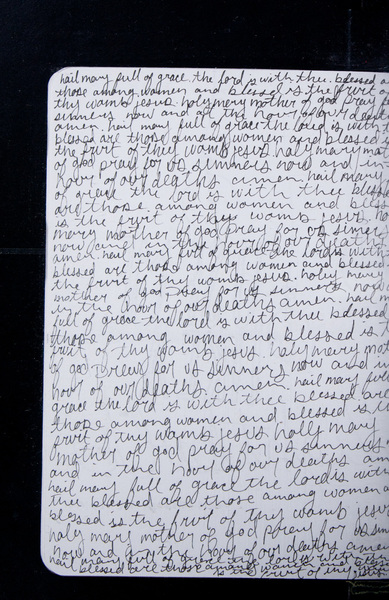 hail mary full of grace. the lord is with thee. blessed a
those among women and blessed is the fruit of
thy womb jesus. holy mery mother of god pray f
sinners now and at the hour of our death
amen. hail mary full of grace the lord is with
blessed are those among women and blessed i
the fruit of thy womb jesus. holy mary mot
of god pray for us sinners now and in
hour of our deaths amen hail mary
of grace the lord is with thee bless
are those among women and bless
is the fruit of thy womb jesus. ho
mery mother of god pray for us siners
now and in the hour of our deaths
amen. hail mary full of grace the lord is with
blessed are those among women and blessed
the fruit of thy womb jesus. holy mary
mother of god pray for us sinners now
in the hour of our deaths amen. hail m
full of grace the lord is with thee blessed
those among women and blessed is
fruit of thy womb jesus. holy mery mot
of god for us sinners now and in
hour of our deaths. amen. hail mary full
grace the lord is with thee blessed are
those among women and blessed is t
fruit of thy womb jesus holy mary
mother of god pray for us sinners
and in the hour of our deaths am
hail mary full of grace the lord is with
thee blessed are those among women a
blessed is the fruit of thy womb jesus
holy mary mother of god pray for us sin
now and in the hour of our deaths amen
hail mary full of grace the lord is with
blessed are those among women and bless
is the fruit of